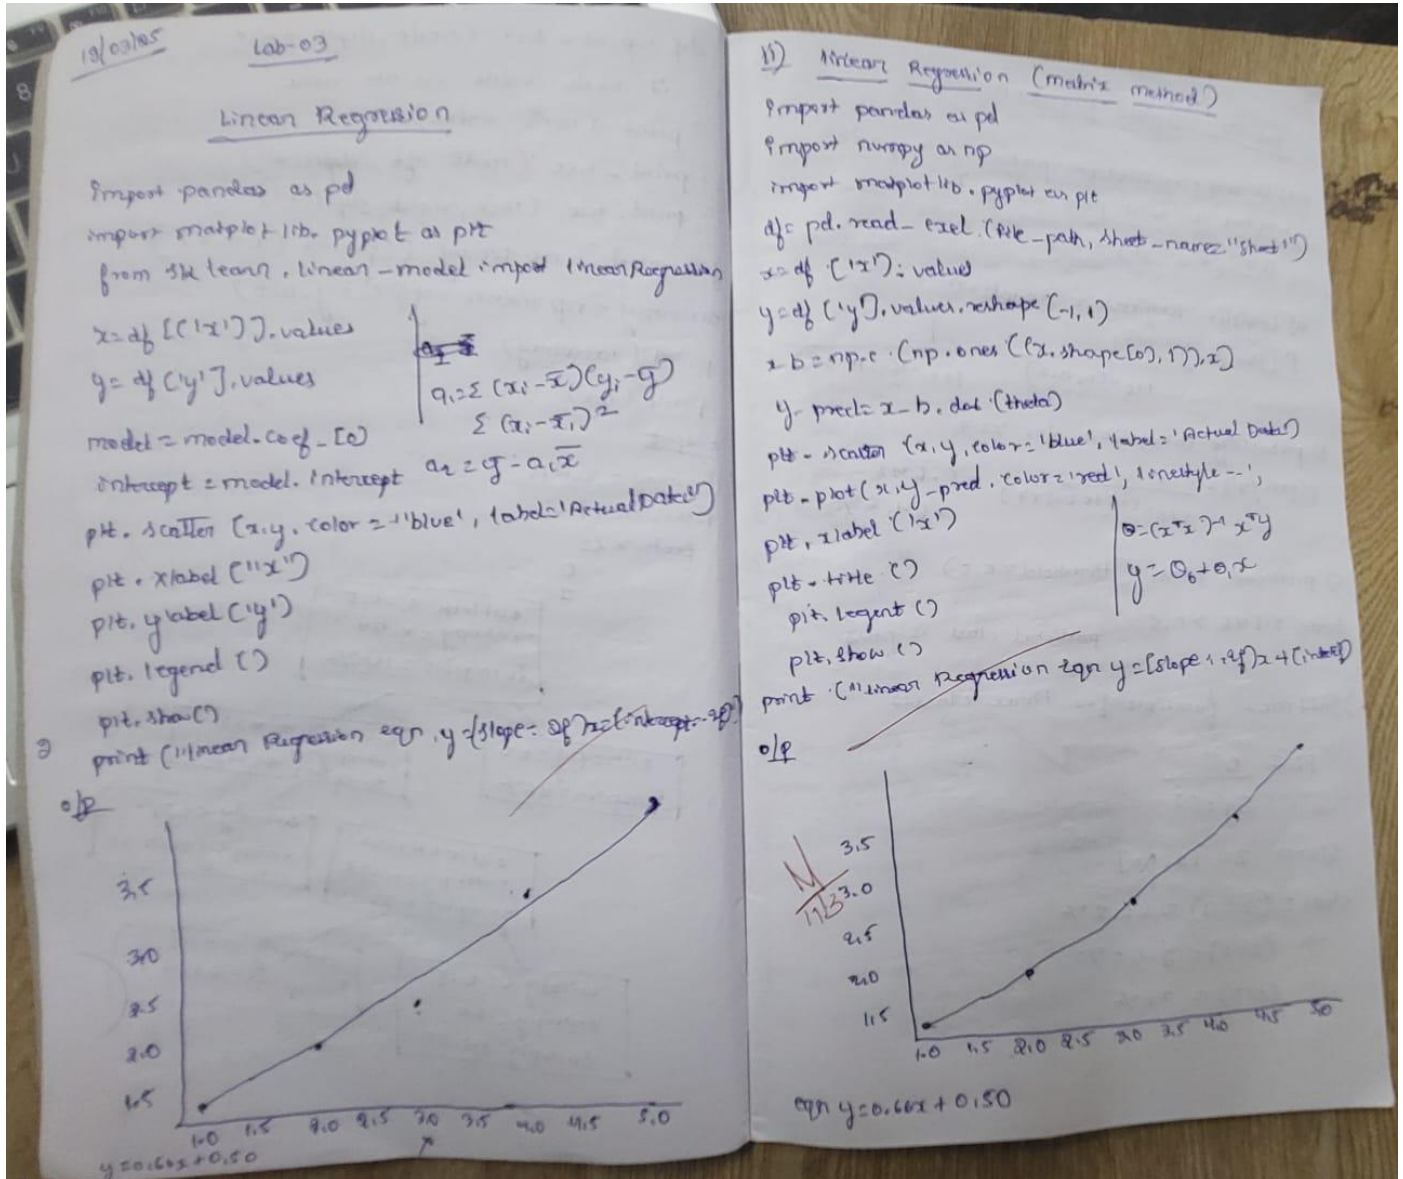 19/03/25
Lab-03
Linear Regression
import pandas as pd
import matplotlib. pyplot as plt
from sklearn. linear-model import linearRegression
x=df [['x']].values
y= df ['y'].values
a₁=Σ (xᵢ-x̄)(yᵢ-ȳ)
Σ (xᵢ-x̄ᵢ)²
model = model.coef_[0]
intercept = model. intercept
a₂=ȳ-a₁x̄
plt. scatter (x,y, color = 'blue', label='Actual Data')
plt. xlabel ("x")
plt. ylabel ('y')
plt. legend ()
plt. sho()
print ("linear Regression eqn, y={slope= 2f}x={intercept-2f}
o/p
3.5
3.0
2.5
2.0
1.5
1.0 1.5 2.0 2.5 3.0 3.5 4.0 4.5 5.0
y=0.66x+0.50
ii) linear Regression (matrix method)
import pandas as pd
import numpy as np
import matplotlib. pyplot as plt
df= pd. read_exel (file_path, sheet_name="sheet1")
x=df ['x']: values
y=df ['y'].values.reshape (-1,1)
x b = np.c (np.ones ((x.shape[0],1)),x]
y_pred= x_b. dot (theta)
plt. scatter (x,y,color='blue', label='Actual Data')
plt. plot (x,y_pred, color='red', linestyle--',
plt. xlabel ('x')
θ=(xᵀx)⁻¹ xᵀy
plt. title ()
y=θ₀+θ₁x
plt. legent ()
plt. show ()
print ("linear Regression eqn y={slope :.2f}x+{
o/p
3.5
3.0
2.5
2.0
1.5
1.0 1.5 2.0 2.5 3.0 3.5 4.0 4.5 5.0
eqn y=0.66x+0.50